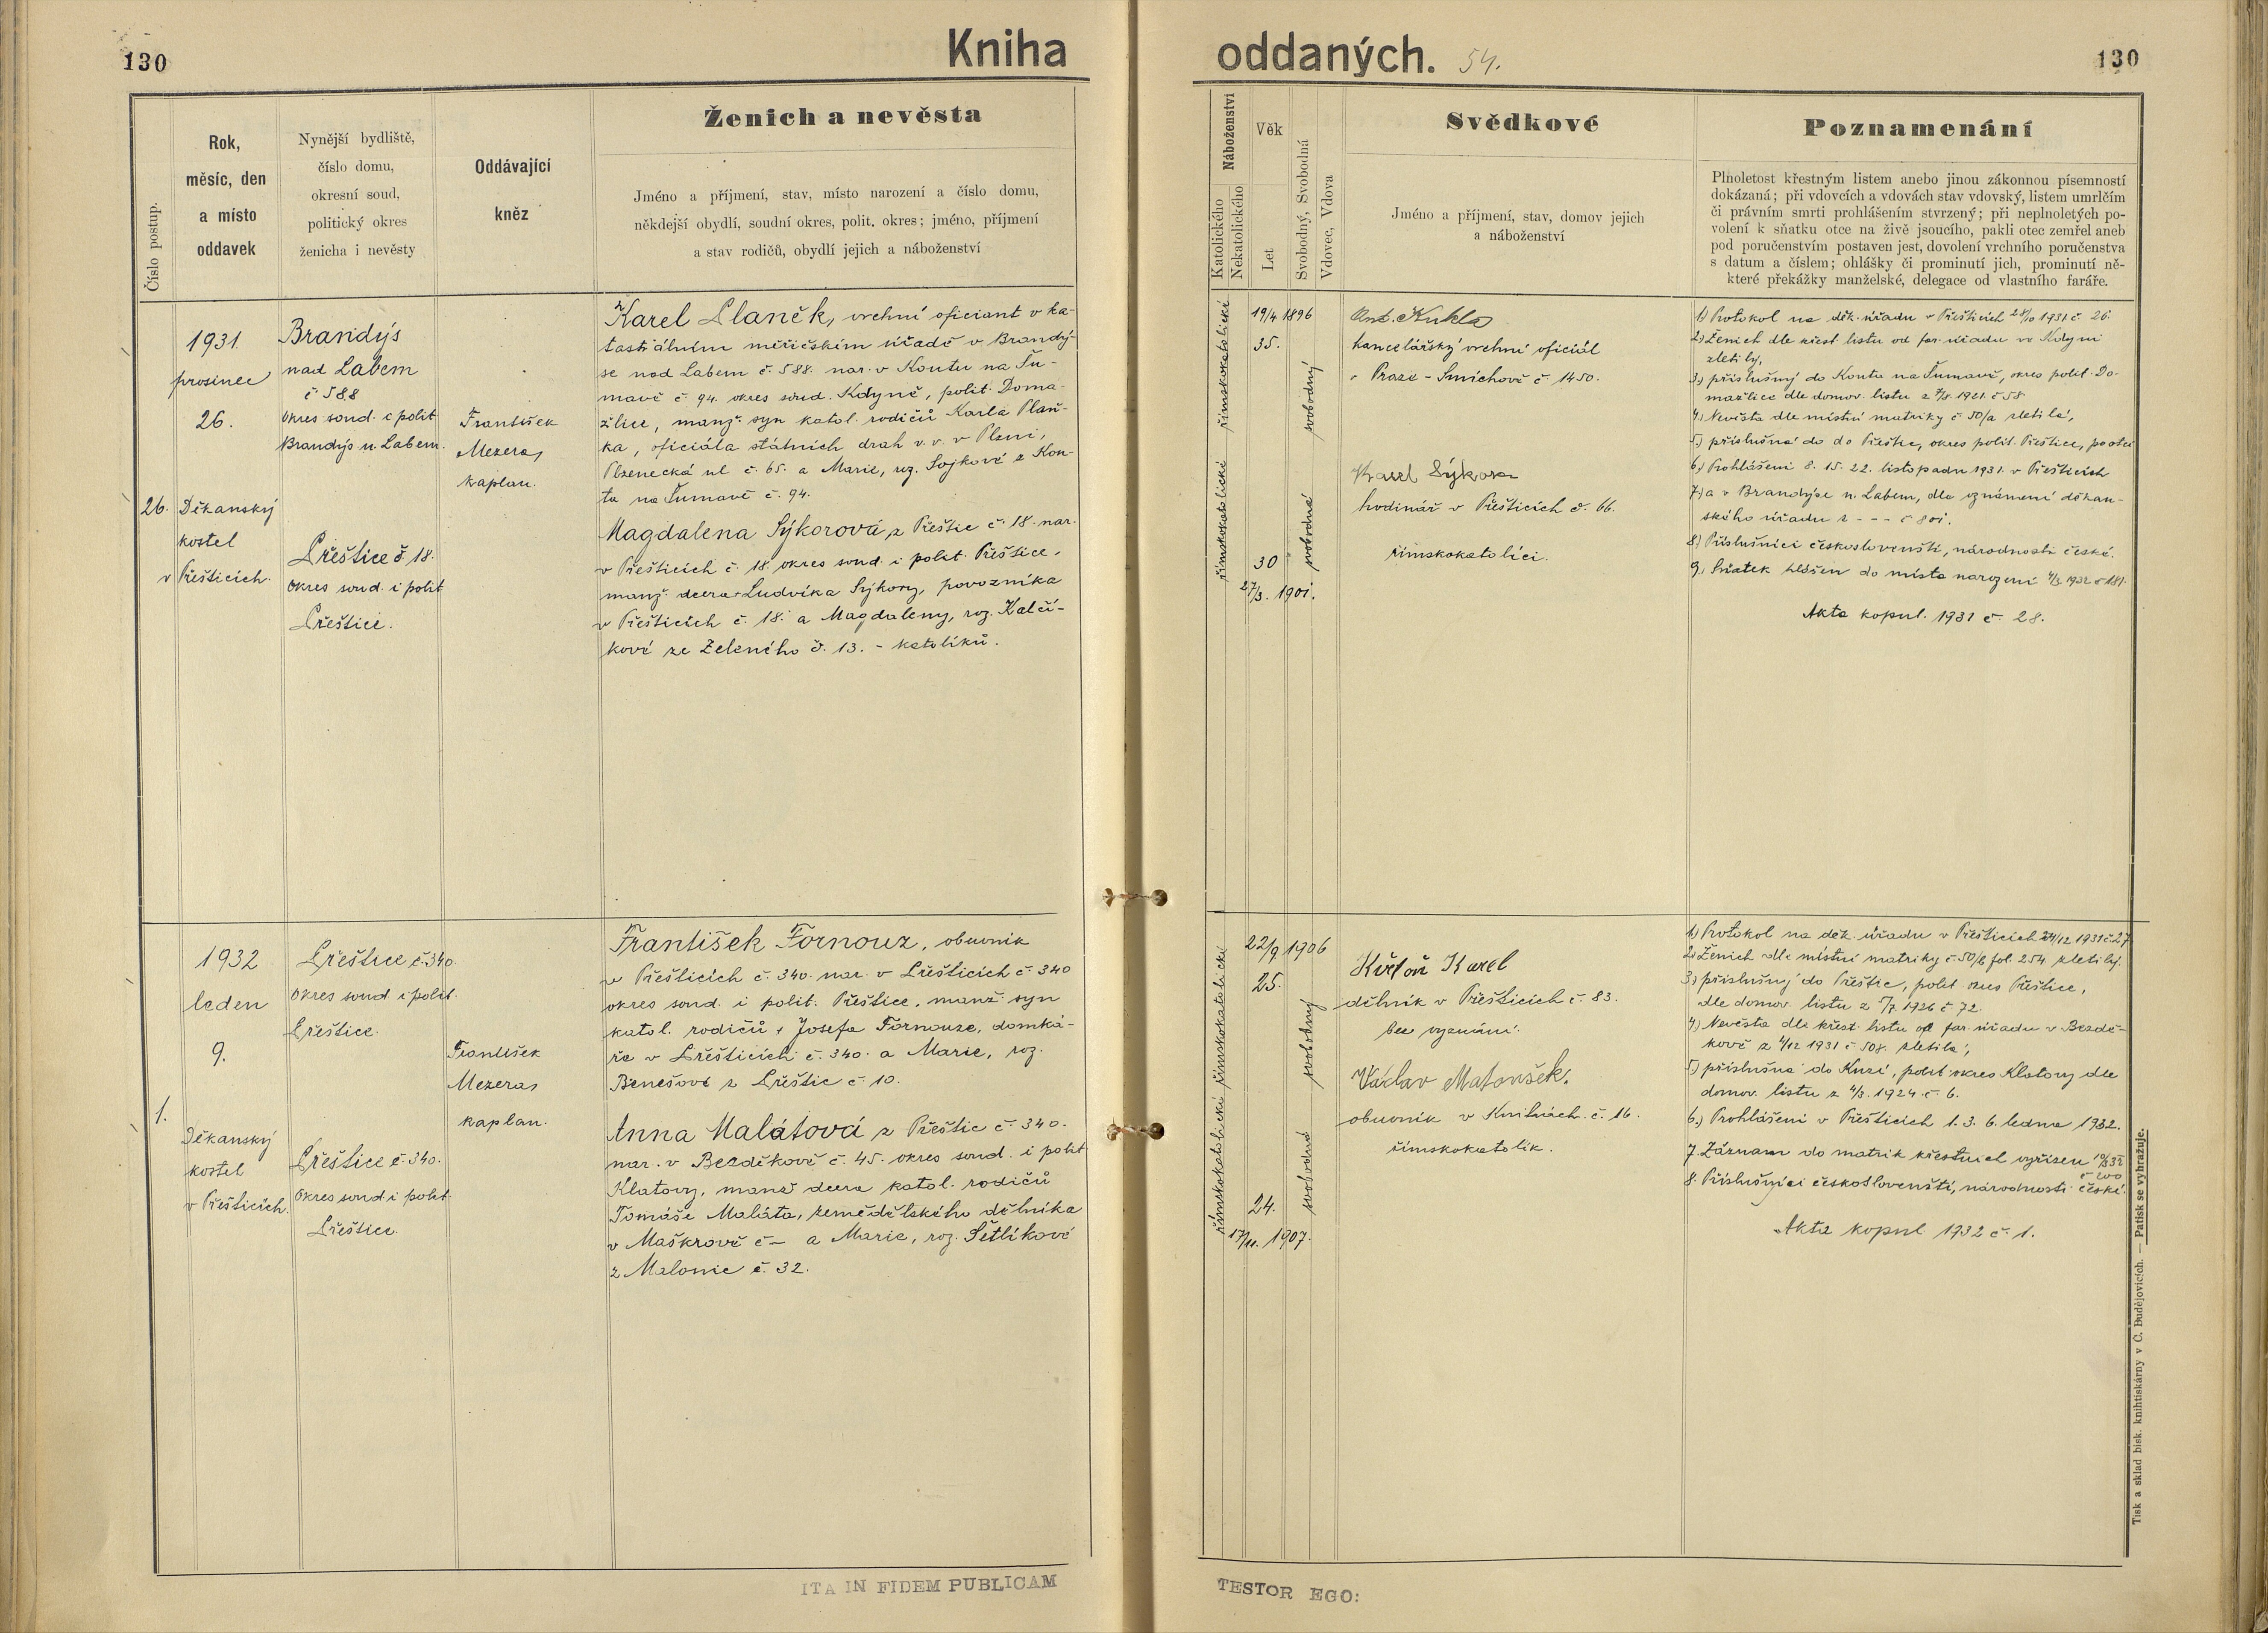 130
Kniha
oddaných. 54.
130
Číslo postup.
Rok,
měsíc, den
a místo
oddavek
Nynější bydliště,
číslo domu,
okresní soud,
politický okres
ženicha i nevěsty
Oddávající
kněz
Ženich a nevěsta
Jméno a příjmení, stav, místo narození a číslo domu,
někdejší obydlí, soudní okres, polit. okres; jméno, příjmení
a stav rodičů, obydlí jejich a náboženství
Náboženství
Katolického
Nekatolického
Věk
Let
Svobodný, Svobodná
Vdovec, Vdova
Svědkové
Jméno a příjmení, stav, domov jejich
a náboženství
Poznamenání
Plnoletost křestným listem anebo jinou zákonnou písemností
dokázaná; při vdovcích a vdovách stav vdovský, listem umrlčím
či právním smrti prohlášením stvrzený; při neplnoletých po-
volení k sňatku otce na živě jsoucího, pakli otec zemřel aneb
pod poručenstvím postaven jest, dovolení vrchního poručenstva
s datum a číslem; ohlášky či prominutí jich, prominutí ně-
které překážky manželské, delegace od vlastního faráře.
26.
1931.
prosinec
26.
Děkanský
kostel
v Přešticích.
Brandýs
nad Labem
č 588
okres soud. i polit
Brandýs n. Labem.
Přeštice č 18.
okres soud. i polit
Přeštice.
František
Mezera,
kaplan.
Karel Planěk, vrchní oficiant v ka-
tastrálním měřičském úřadě v Brandý-
se nad Labem č. 588. nar. v Koutu na Šu-
mavě č. 94. okres soud. Kdyně, polit. Doma-
žlice, manž. syn katol. rodičů Karla Plaň-
ka, oficiála státních drah v. v. v Plzni,
Plzenecká ul č. 65. a Marie, roz. Sojkové z Kou-
ta na Šumavě č. 94.
Magdalena Sýkorová z Přeštic č. 18. nar.
v Přešticích č. 18. okres soud. i polit. Přeštice,
manž. dcera Ludvíka Sýkory, povozníka
v Přešticích č. 18. a Magdaleny, roz. Kalčí-
kové ze Zeleného č. 13. - katolíků.
římskokatolické
římskokatolické
19/4 1896
35.
30
27/3. 1901.
svobodný
svobodná
Ant. Kukla
kancelářský vrchní oficiál
v Praze - Smíchově č. 1450.
Karel Sýkora
hodinář v Přešticích č. 66.
římskokatolíci.
1) Protokol na děk. úřadu v Přešticích 24/10 1931. č. 26.
2) Ženich dle křest. listu od far. úřadu ve Kdyni
zletilý,
3.) příslušný do Kouta na Šumavě, okres polit. Do-
mažlice dle domov. listu z 7/8. 1921. č 58
4.) Nevěsta dle místní matriky č 50/a zletilá,
5.) příslušná do do Přeštic, okres polit. Přeštice, po otci
6.) Prohlášení 8. 15. 22. listopadu 1931. v Přešticích
7.) a v Brandýse n. Labem, dle oznámení děkan-
ského úřadu z - - - č 801.
8.) Příslušníci českoslovenští, národnosti české.
9. Sňatek hlášen do místa narození 4/1. 1932 č 181.
Akta kopul. 1931 č. 28.
1.
1932
leden
9.
Děkanský
kostel
v Přešticích.
Přeštice č. 340.
okres soud i polit.
Přeštice.
Přeštice č. 340.
okres soud i polit
Přeštice.
František
Mezera,
kaplan.
František Fornouz, obuvník
v Přešticích č. 340. nar. v Přešticích č. 340
okres soud. i polit. Přeštice, manž. syn
katol. rodičů, Josefa Fornouze, domká-
ře v Přešticích č. 340. a Marie, roz.
Benešové z Přeštic č. 10.
Anna Malátová z Přeštic č. 340.
nar. v Bezděkově č. 45. okres soud. i polit
Klatovy, manž dcera katol. rodičů
Tomáše Maláta, zemědělského dělníka
v Maškrově č — a Marie, roz. Šetlíkové
z Malonic č. 32.
římskokatolické
římskokatolické
22/9 1906
25.
24.
17/11. 1907.
svobodný
svobodná
Květoň Karel
dělník v Přešticích č. 83.
bez vyznání.
Václav Matoušek.
obuvník v Knihách č. 16.
římskokatolík.
1.) Protokol na děk. úřadu v Přešticích 24/12 1931 č. 27
2.) Ženich dle místní matriky č 50/b fol. 254. zletilý.
3.) příslušný do Přeštic, polit okres Přeštice,
dle domov. listu z 5/7. 1926 č. 72.
4.) Nevěsta dle křest. listu od far. úřadu v Bezdě-
kově z 4/12 1931 č 508. zletilá,
5.) příslušná do Kusí, polit okres Klatovy dle
domov. listu z 4/3. 1924. č. 6.
6.) Prohlášení v Přešticích 1. 3. 6. ledna 1932.
7. Záznam do matrik křestních vyřízen
8. Příslušníci českoslovenští, národnosti české.
Akta kopul 1932 č. 1.
Tisk a sklad bisk. knihtiskárny v Č. Budějovicích. — Patisk se vyhražuje.
ITA IN FIDEM PUBLICAM
TESTOR EGO: